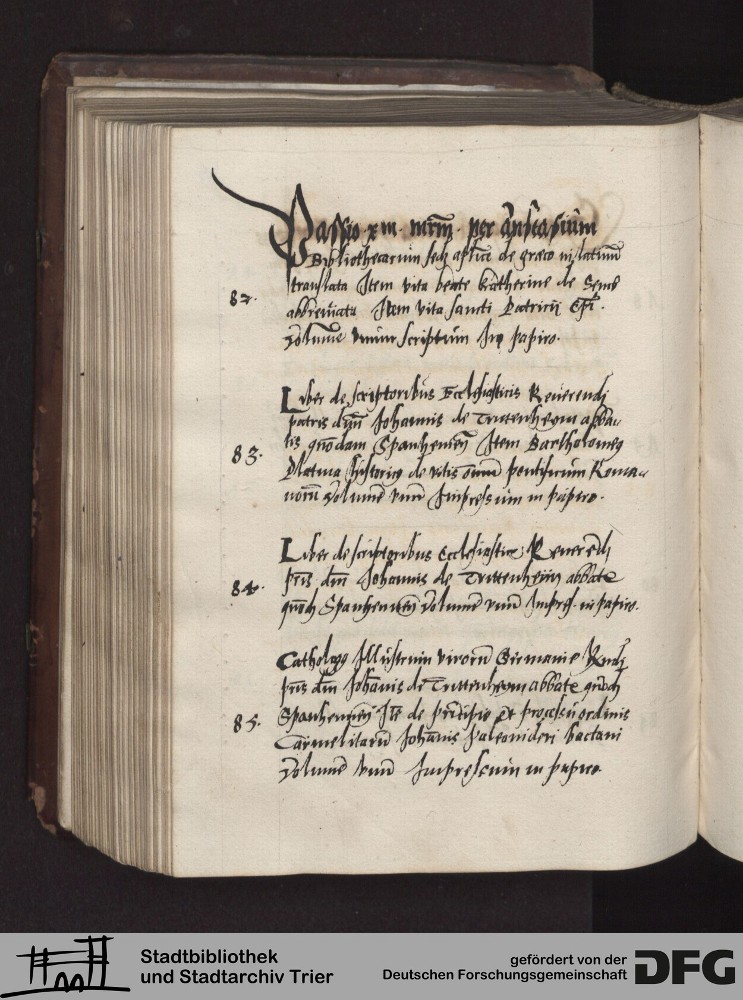 Passio xm. mrm̄. per Anastasium
Bibliothecarium sedꝭ aplice de græco in latinum̄
translata Item vita beate katherine de Senis
82.
abbreviata Item vita sancti Patricii Epī.
volumē vnum scriptum In papiro.
Liber de scriptoribus Ecclesiasticis Reuerendi
patris dn̄i Johannis de Trittenheym abba-
tis quōdam Spanhemeñ Item Bartholomeꝯ
83.
Platina historicꝯ de vitis om̄m pontificum Roma-
norū volumē vnū Impressum in papiro.
Liber de scriptoribus Ecclesiasticꝭ Reuerēdi
pr̄is dn̄i Johannis de Trittenheym abbatꝭ
84.
quōdā Spanhemeñ volumē vnū Impres. in papiro.
Cathologꝯ Illustrium virorū Germanie Reuedi
pr̄is dn̄i Johānis de Trittenheym abbatꝭ quōdā
Spanhemeñ Itē de prīcipio et processu ordinis
85.
Carmelitarū Johānis Paleonidori bactani
volumē vnū Impressum in papiro.
Stadtbibliothek
und Stadtarchiv Trier
gefördert von der
Deutschen Forschungsgemeinschaft
DFG